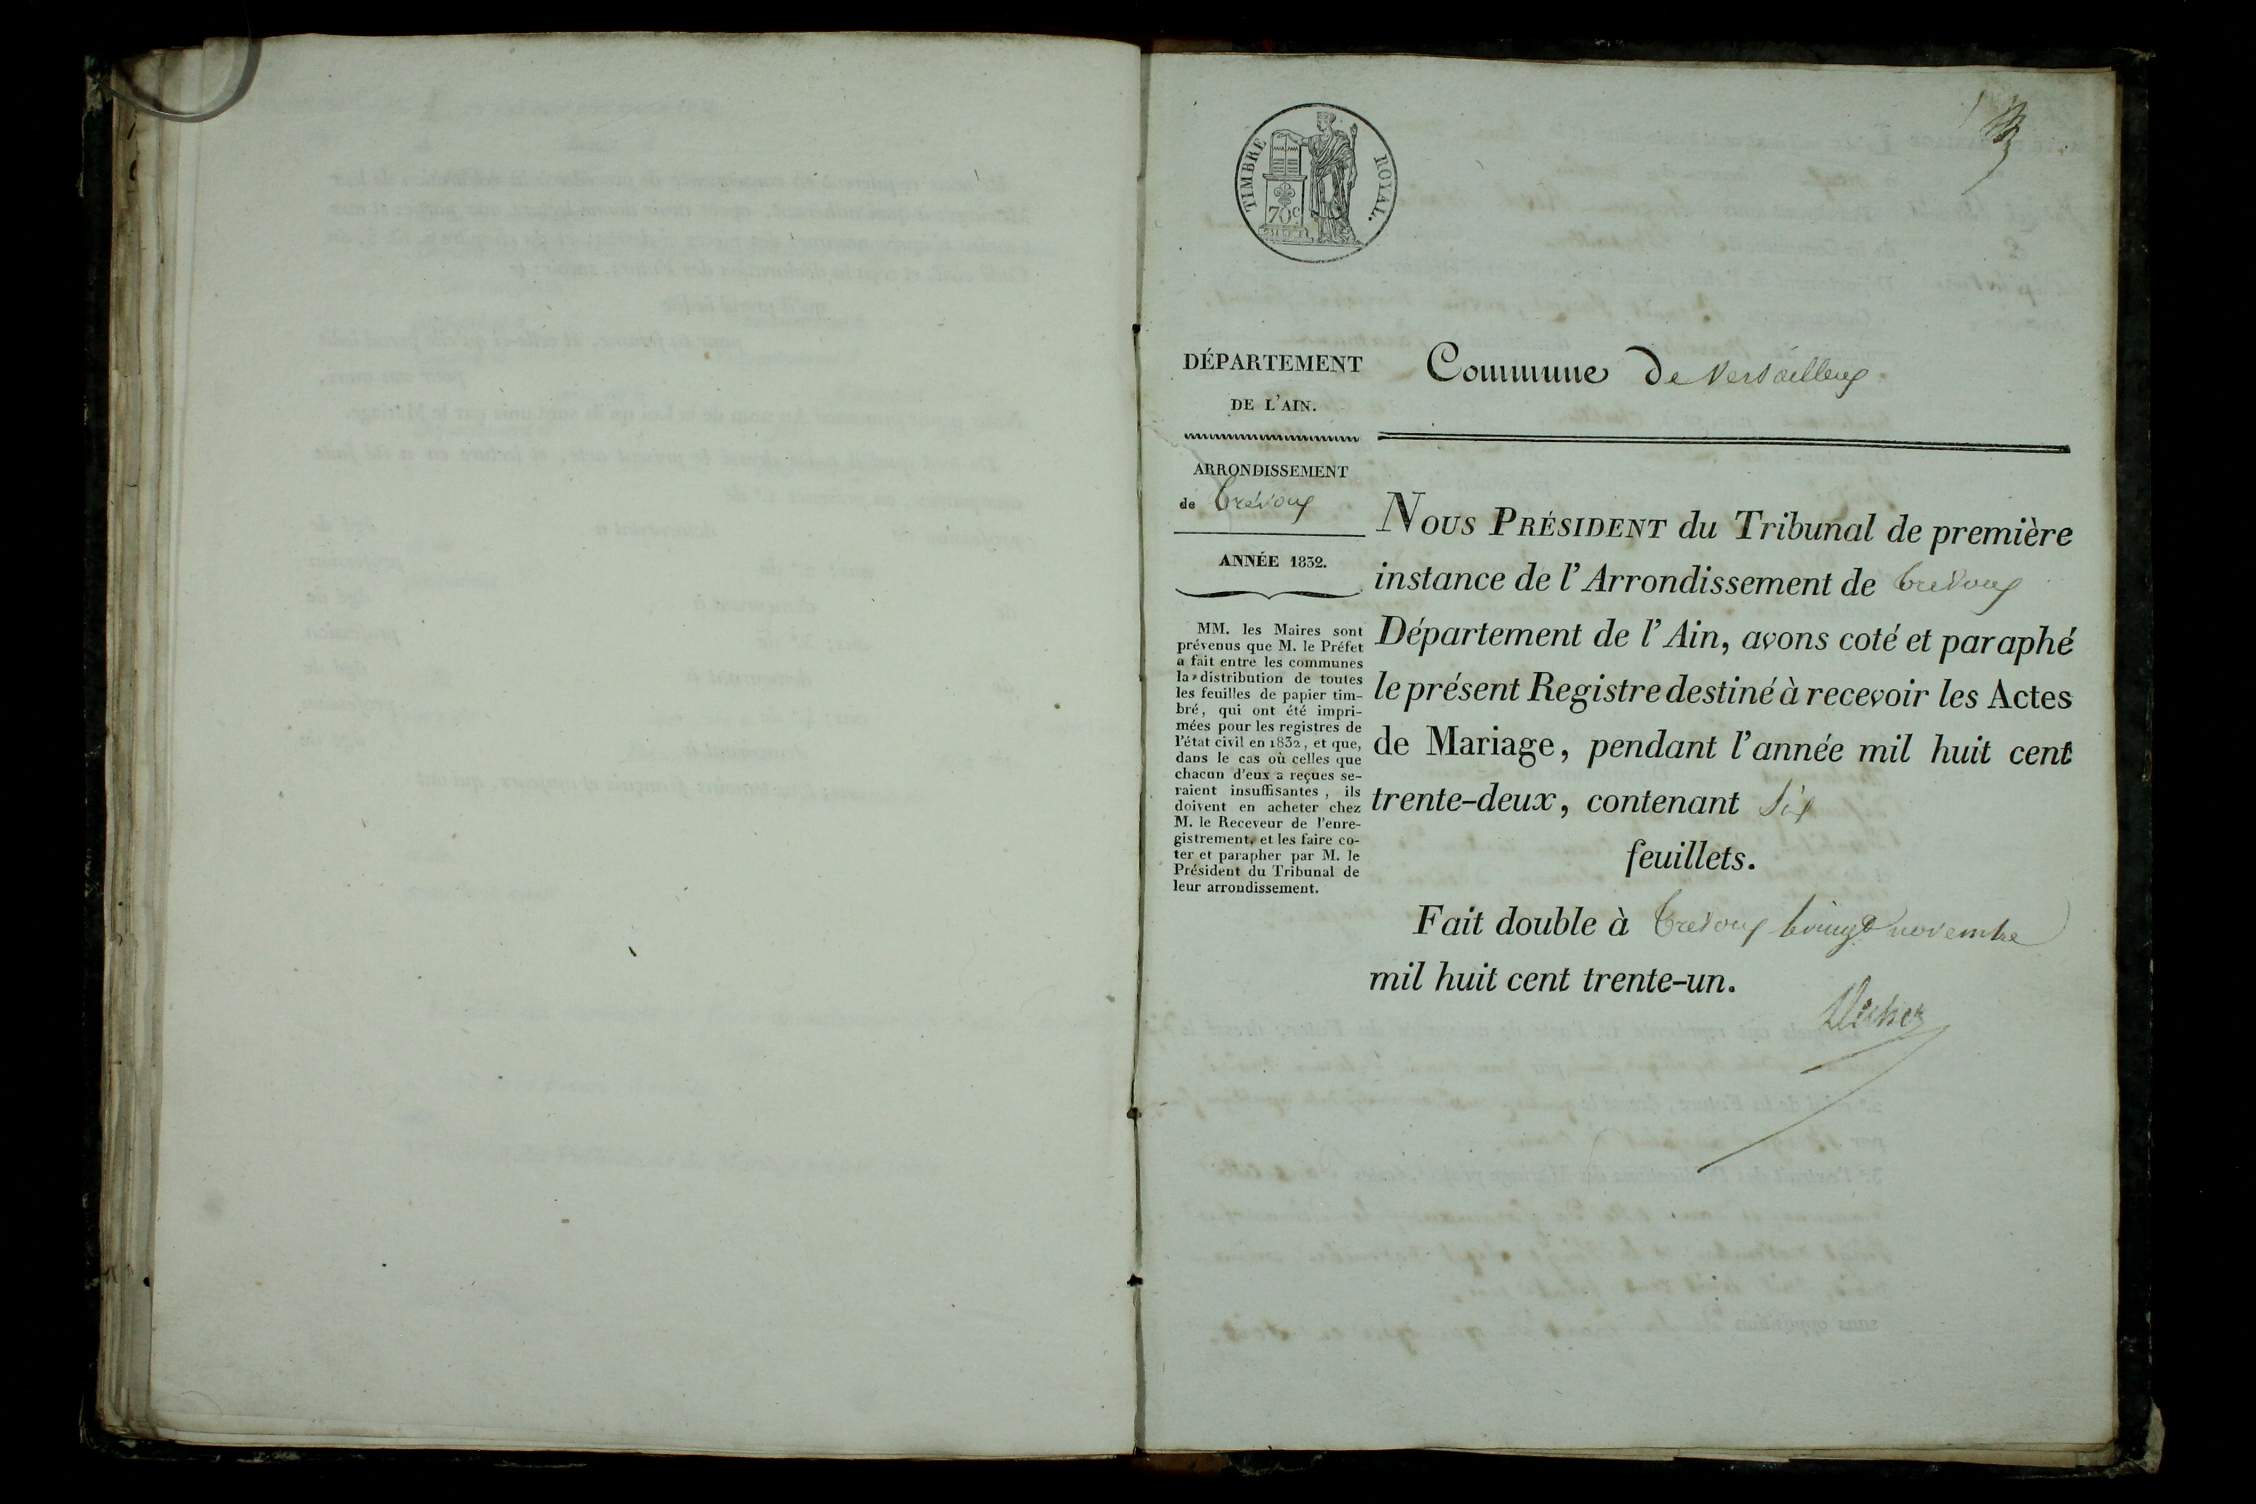 TIMBRE ROYAL.
70c
DÉPARTEMENT
DE L'AIN.
ARRONDISSEMENT
de Trévoux
ANNÉE 1832.
MM. les Maires sont
prévenus que M. le Préfet
a fait entre les communes
la distribution de toutes
les feuilles de papier tim-
bré, qui ont été impri-
mées pour les registres de
l'état civil en 1832, et que,
dans le cas où celles que
chacun d'eux a reçues se-
raient insuffisantes, ils
doivent en acheter chez
M. le Receveur de l'enre-
gistrement, et les faire co-
ter et parapher par M. le
Président du Tribunal de
leur arrondissement.
Commune De Versailleux
NOUS PRÉSIDENT du Tribunal de première
instance de l'Arrondissement de Trévoux
Département de l'Ain, avons coté et paraphé
le présent Registre destiné à recevoir les Actes
de Mariage, pendant l'année mil huit cent
trente-deux, contenant Six
feuillets.
Fait double à Trévoux vingt novembre
mil huit cent trente-un.